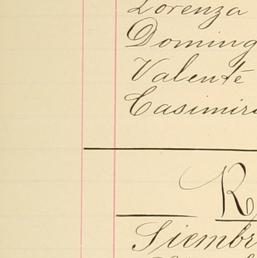 Lorenza
Doming
Valente
Casimir
R
Siembr